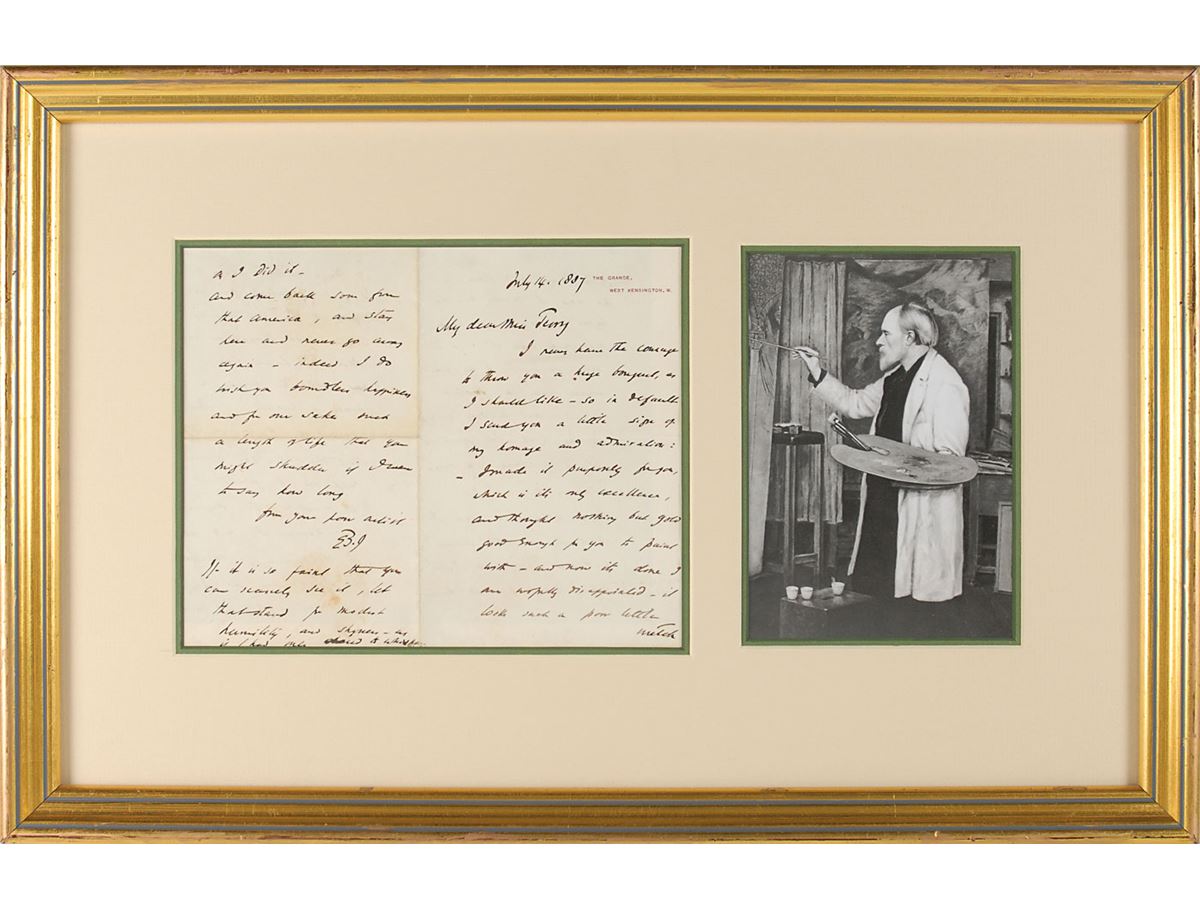 July 14. 1887
THE GRANGE,
WEST KENSINGTON, W.
My dear Miss Terry
I never have the courage
to throw you a huge bouquet, as
I should like - so in default
I send you a little sign of
my homage and admiration:
- I made it purposely for you,
which is its only excellence,
and thought nothing but gold
good enough for you to paint
with - and now its done I
am wofully disappointed - it
looks such a poor little
wretch
as I did it -
and come back soon from
that America, and stay
here and never go away
again - indeed I do
wish you boundless happiness
and for our sake such
a length of life that you
might shudder if I were
to say how long
from your poor artist
EBJ
If it is so faint that you
can scarcely see it, let
that stand for modest
humility, and shyness - as
if I had only dared to whisper